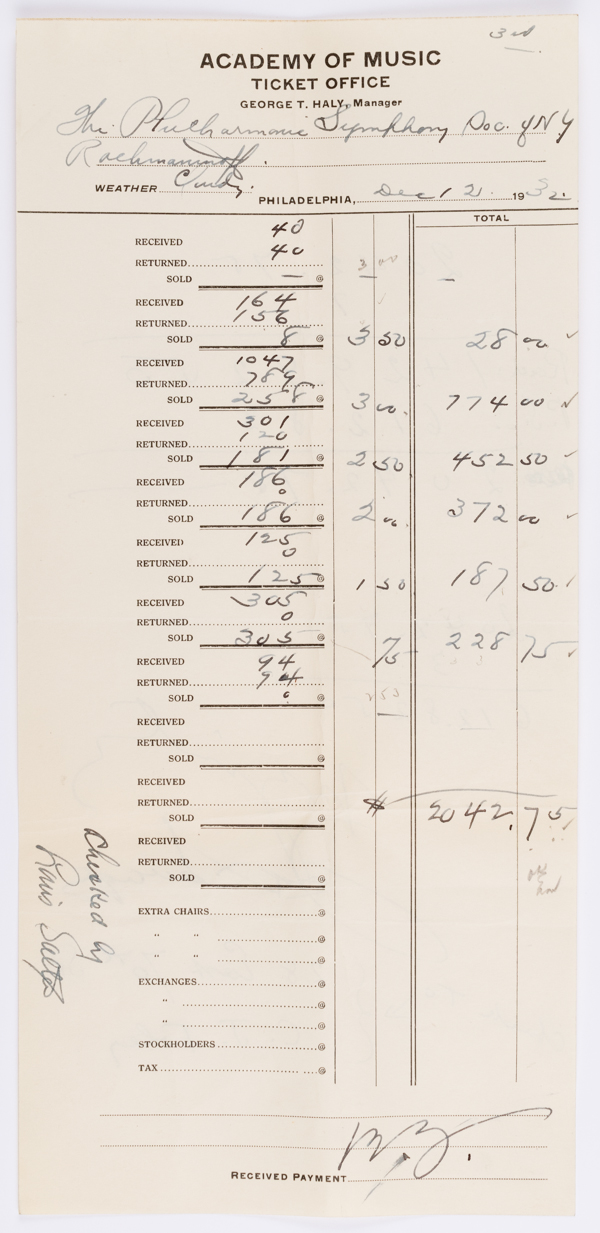 3rd
ACADEMY OF MUSIC
TICKET OFFICE
GEORGE T. HALY, Manager
The Philharmonic Symphony Soc. of NY
Rachmaninoff.
WEATHER
PHILADELPHIA, Dec 12. 1932.
TOTAL
40
RECEIVED
40
RETURNED 3 00
SOLD — @ —
RECEIVED 164
RETURNED 156
SOLD 8 @ 3 50 28 00 ✓
RECEIVED 1047
RETURNED 789
SOLD 258 @ 3 00. 774 00 ✓
RECEIVED 301
RETURNED 120
SOLD 181 @ 2 50 452 50 ✓
RECEIVED 186
RETURNED 0
SOLD 186 @ 2 00 372 00 ✓
RECEIVED 125
RETURNED 0
SOLD 125 @ 1 50 187 50 ✓
RECEIVED 305
RETURNED 0
SOLD 305 @ 75 228 75 ✓
RECEIVED 94
RETURNED 94
SOLD 0 @
RECEIVED
RETURNED
SOLD @
RECEIVED
RETURNED # 2042.75
SOLD @
RECEIVED
RETURNED
SOLD @
Checked by
EXTRA CHAIRS @
" " @
" " @
EXCHANGES @
" @
" @
STOCKHOLDERS @
TAX @
RECEIVED PAYMENT